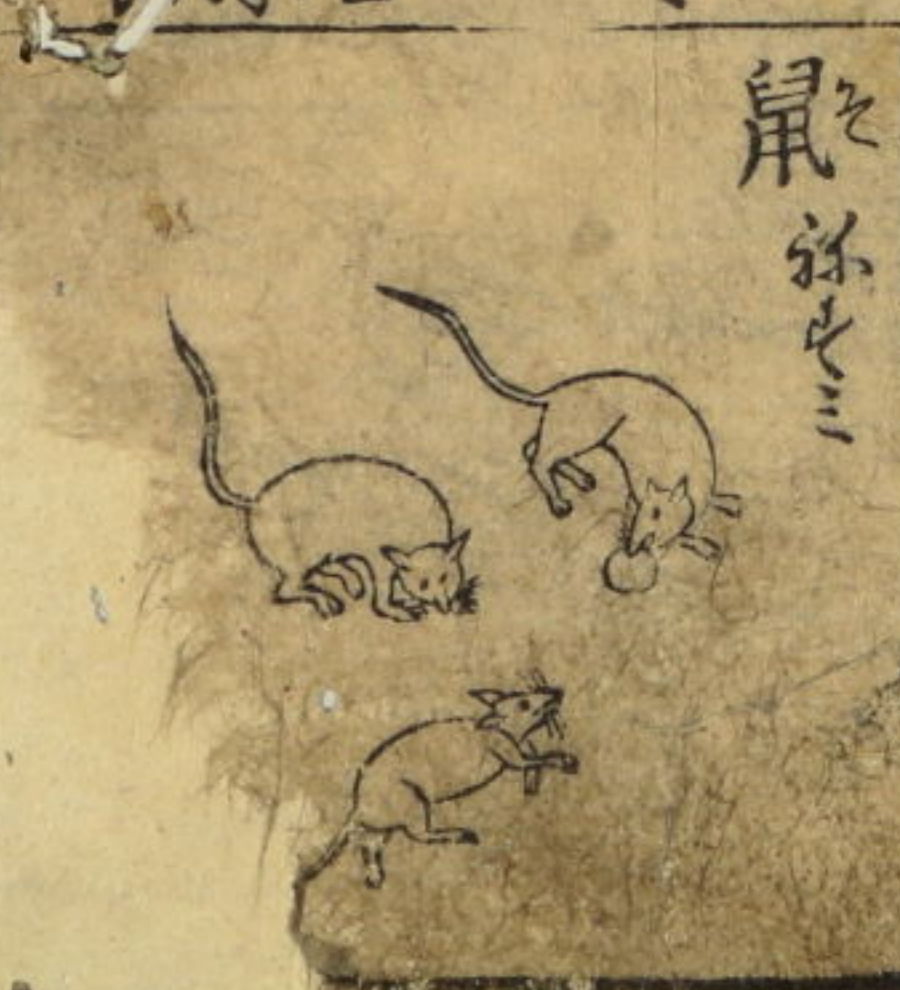 鼠 そ
祢ずミ